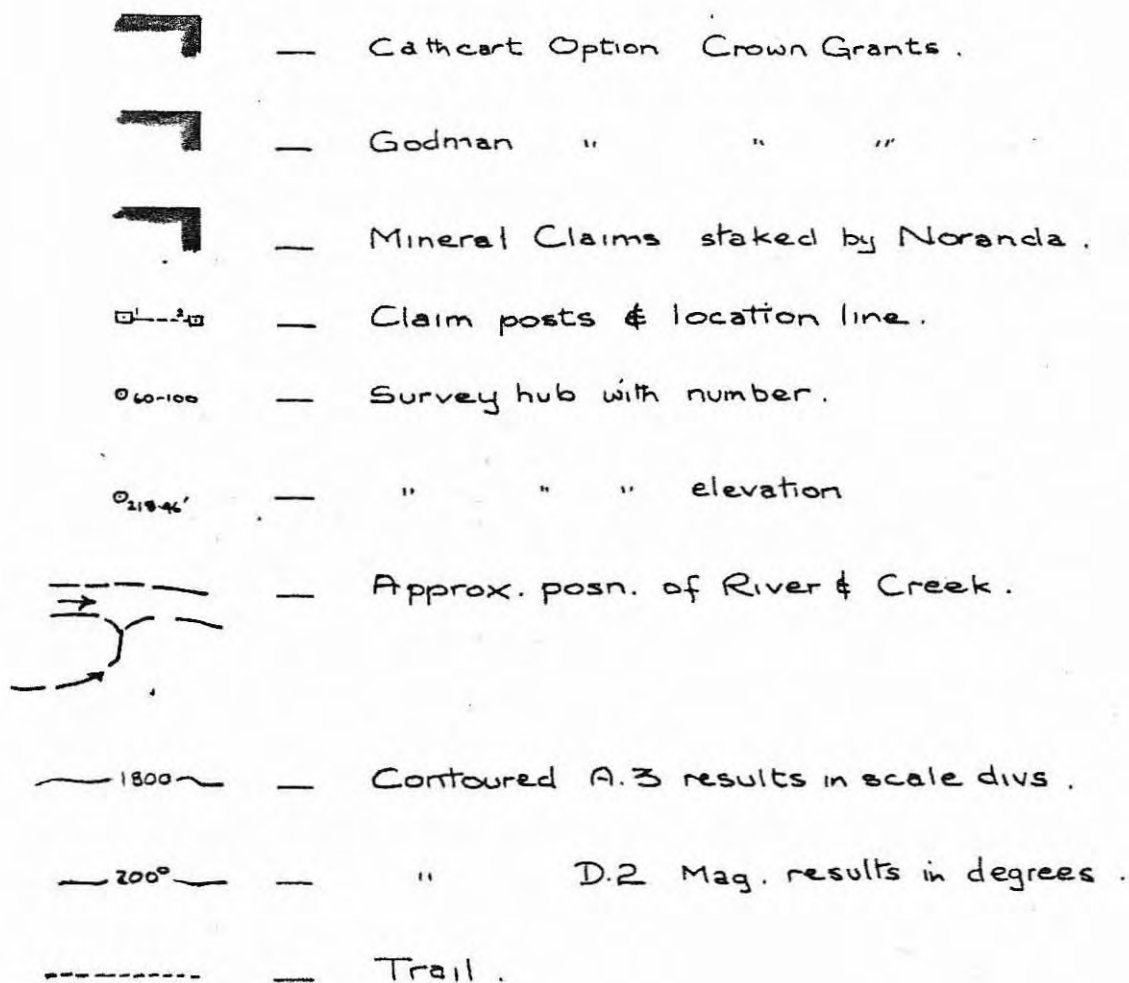 — Cathcart Option Crown Grants.
— Godman " " "
— Mineral Claims staked by Noranda.
1 2 — Claim posts & location line.
60-100 — Survey hub with number.
218.46' — " " " elevation
— Approx. posn. of River & Creek.
1800 — Contoured A.3 results in scale divs.
200° — " D.2 Mag. results in degrees.
— Trail.